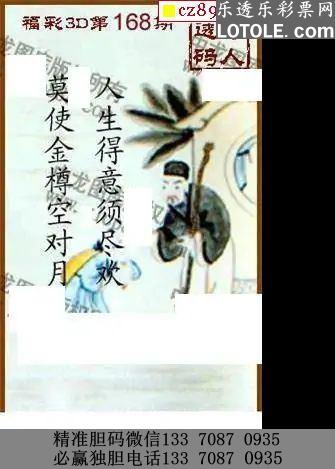 福彩3D第168期
cz89
乐透乐彩票网
LOTOLE.COM
透码
人
人生得意须尽欢
莫使金樽空对月
精准胆码微信133 7087 0935
必赢独胆电话133 7087 0935